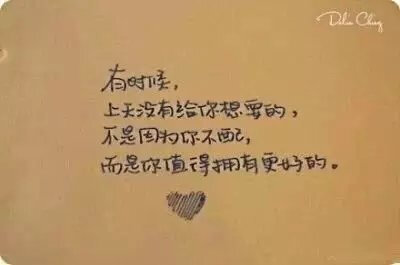 有时候,
上天没有给你想要的,
不是因为你不配,
而是你值得拥有更好的。